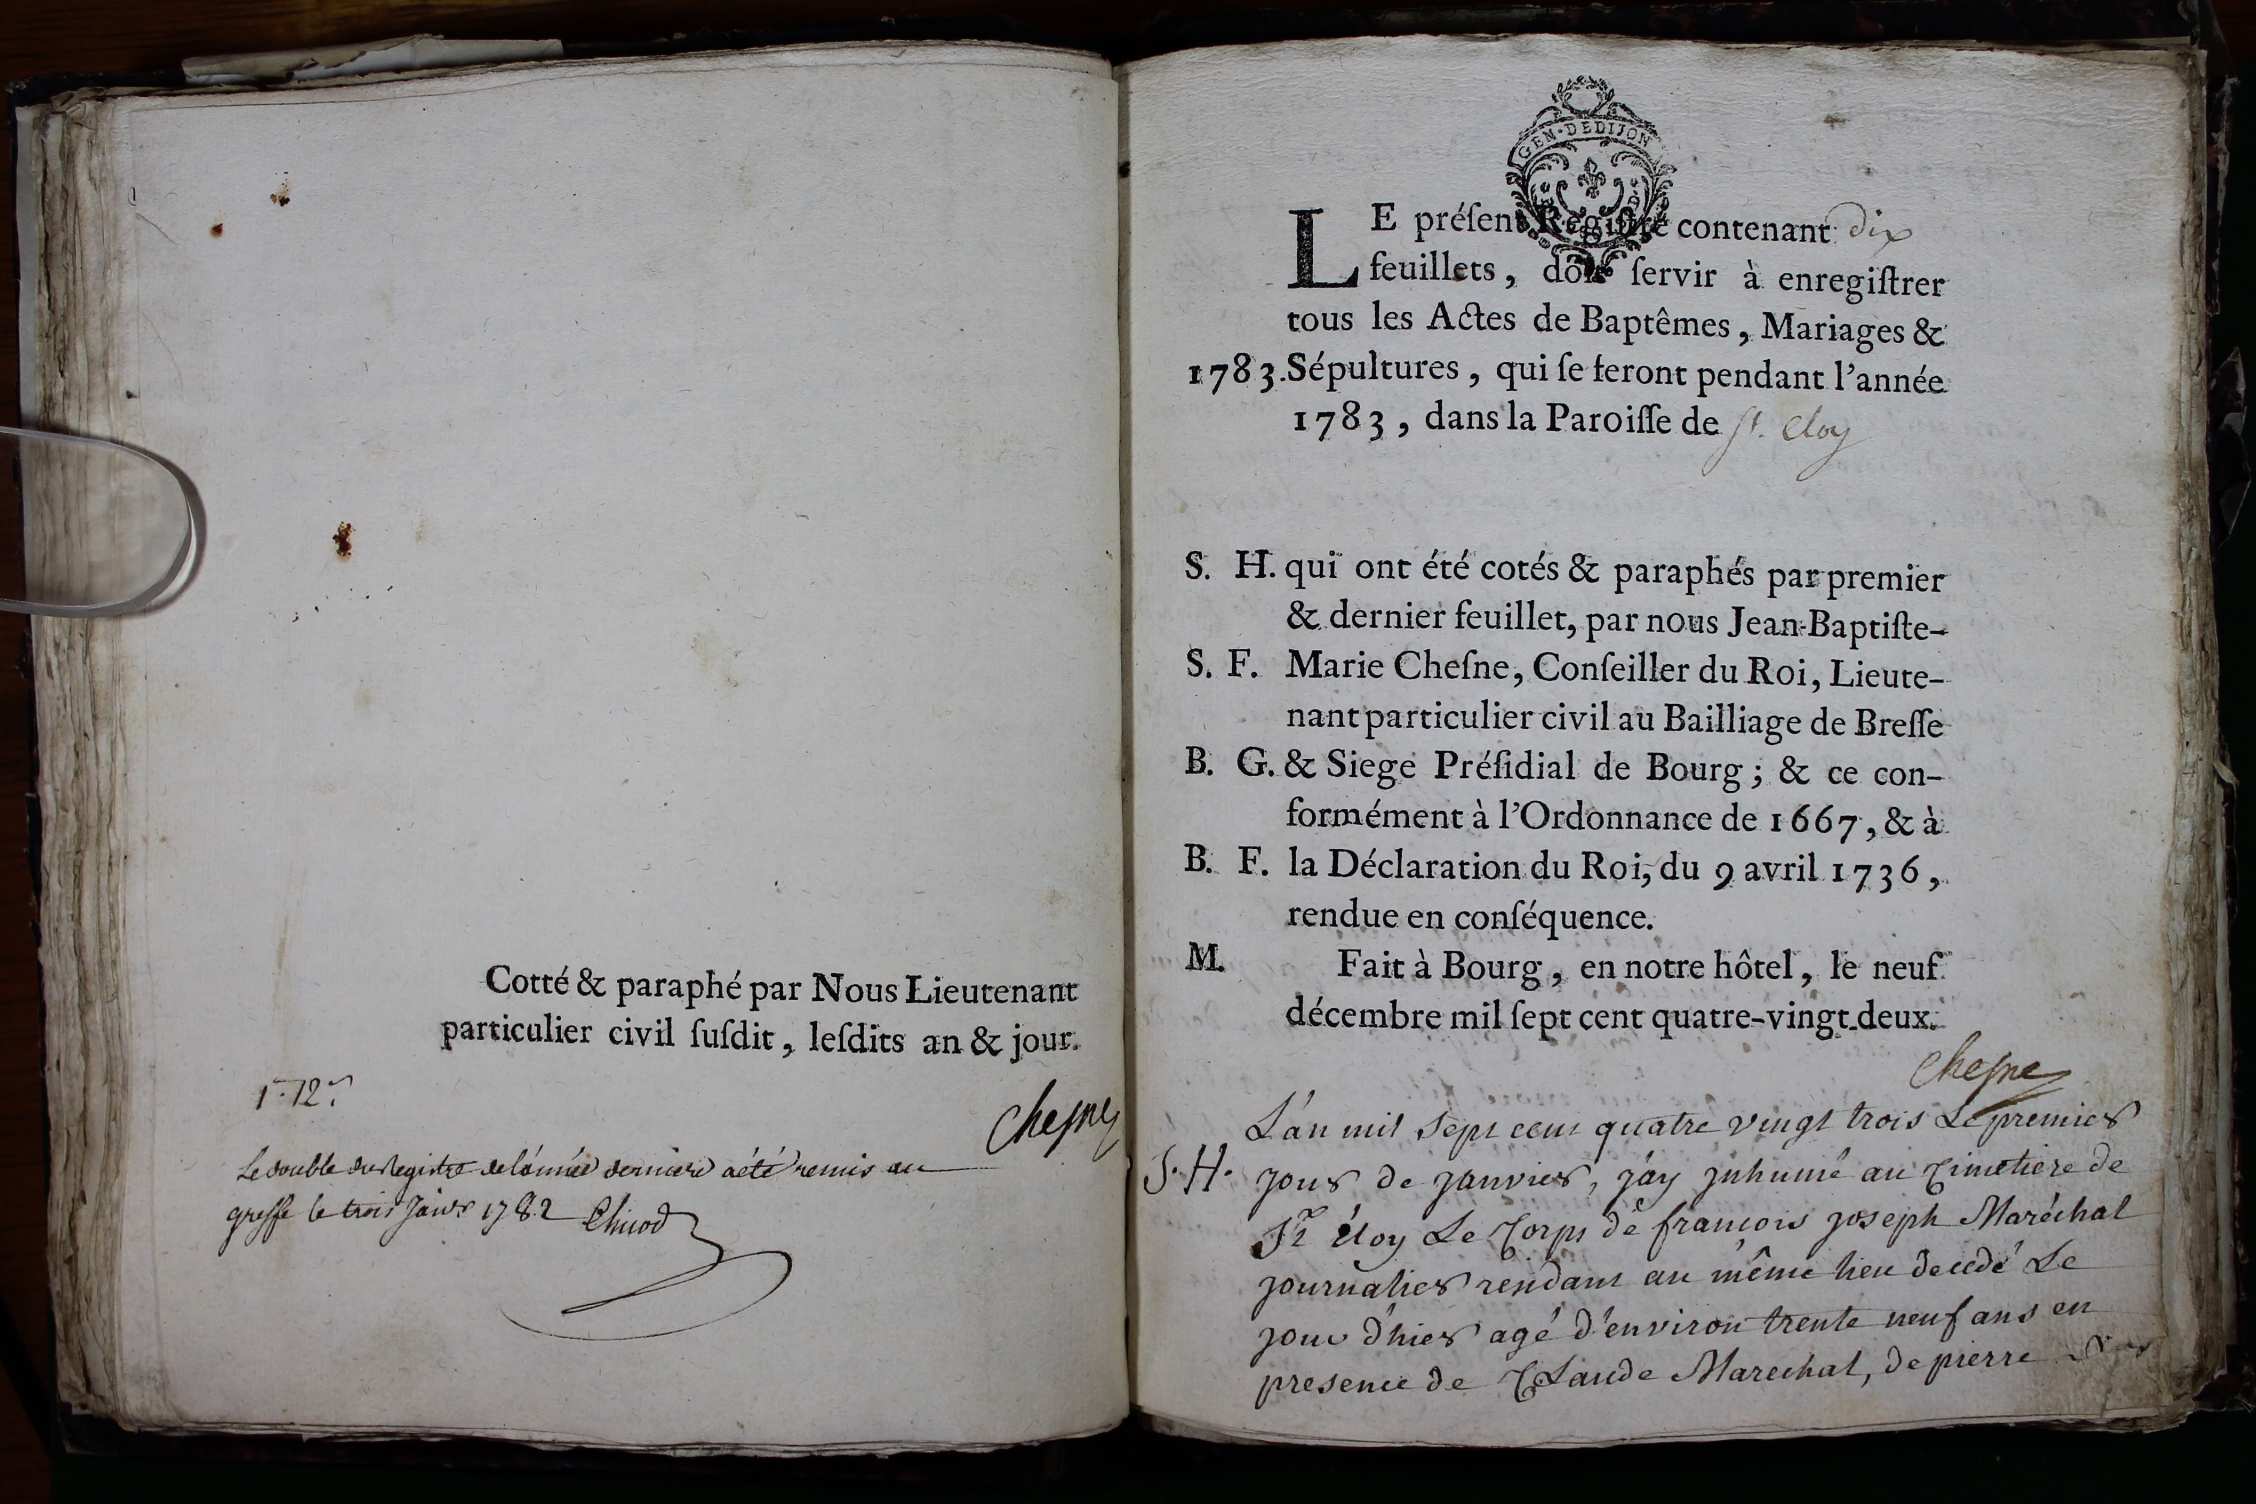 Cotté & paraphé par Nous Lieutenant
particulier civil ſuſdit, leſdits an & jour.
Cheſne
Le double du Registre de l'année derniere a été remis au
greffe le trois Janvr 1782
GEN·DEDIJON
LE préſent Regiſtre contenant dix
feuillets, doit ſervir à enregiſtrer
tous les Actes de Baptêmes, Mariages &
1783. Sépultures, qui ſe feront pendant l'année
1783, dans la Paroiſſe de St. Eloy
S. H. qui ont été cotés & paraphés par premier
& dernier feuillet, par nous Jean-Baptiſte-
S. F. Marie Cheſne, Conſeiller du Roi, Lieute-
nant particulier civil au Bailliage de Breſſe
B. G. & Siege Préſidial de Bourg; & ce con-
formément à l'Ordonnance de 1667, & à
B. F. la Déclaration du Roi, du 9 avril 1736,
rendue en conſéquence.
M. Fait à Bourg, en notre hôtel, le neuf
décembre mil ſept cent quatre-vingt-deux.
Cheſne
L'an mil sept cent quatre vingt trois Le premier
S. H. jour de janvier, j'ay jnhumé au Cimetiere de
St Eloy Le Corps de françois joseph Maréchal
journalier rendant au même lieu decedé Le
jour d'hier agé d'environ trente neuf ans en
presence de Claude Marechal, de pierre